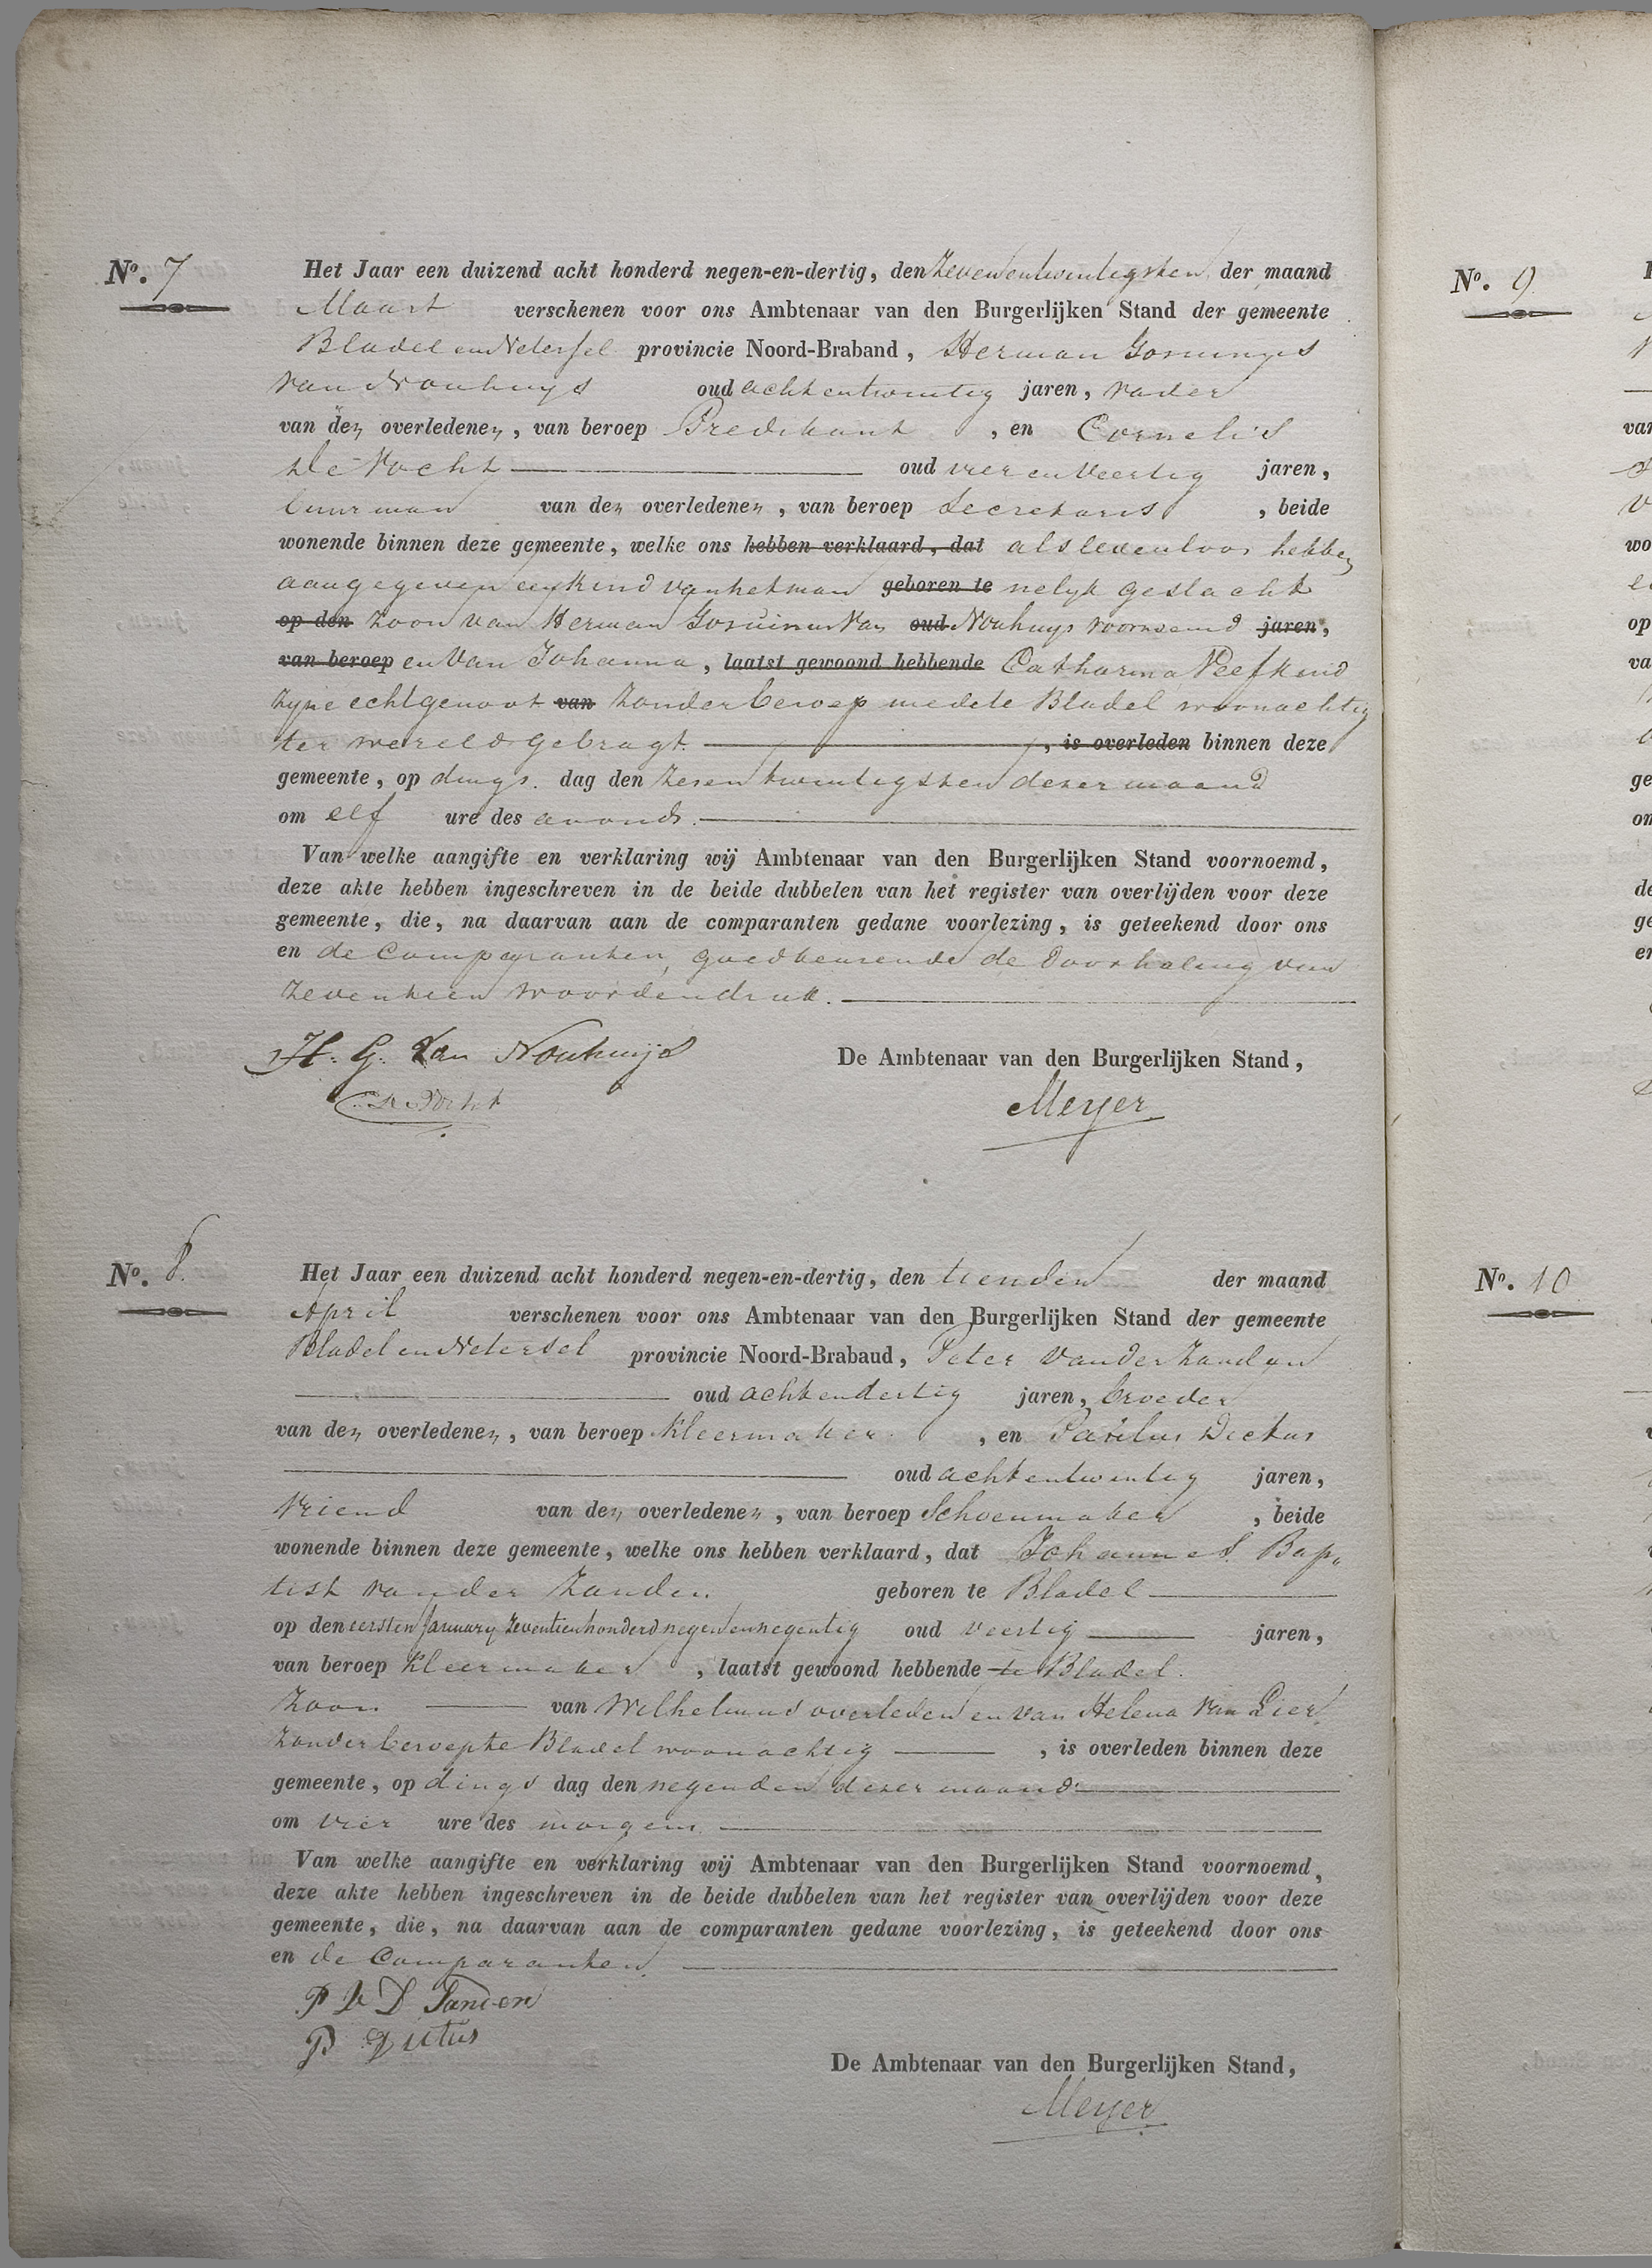 No. 7
Het Jaar een duizend acht honderd negen-en-dertig, den zevenentwintigsten der maand
Maart verschenen voor ons Ambtenaar van den Burgerlijken Stand der gemeente
Bladel en Netersel provincie Noord-Braband, Herman
van Nouhuys oud achtentwintig jaren, vader
van den overledenen, van beroep Predikant, en Cornelis
de Vocht oud vier en veertig jaren,
buurman van den overledenen, van beroep Secretaris, beide
wonende binnen deze gemeente, welke ons hebben verklaard, dat als levenloos hebben
aangegeven een kind van het man geboren te nelyk geslacht
op den zoon van Herman Gosuinus Van oud Nouhuys voornoemd jaren,
van beroep en van Johanna, laatst gewoond hebbende Catharina Veefkind
zyne echtgenoot van zonder beroep mede te Bladel woonachtig
ter wereld gebragt, is overleden binnen deze
gemeente, op dings. dag den zesentwintigsten dezer maand
om elf ure des avonds.
Van welke aangifte en verklaring wij Ambtenaar van den Burgerlijken Stand voornoemd,
deze akte hebben ingeschreven in de beide dubbelen van het register van overlijden voor deze
gemeente, die, na daarvan aan de comparanten gedane voorlezing, is geteekend door ons
en de Comparanten, goedkeurende de doorhaling van
zeventien woorden druk.
H. G. Van Nouhuijs
De Ambtenaar van den Burgerlijken Stand,
C. de Vocht
Meyer
No. 8.
Het Jaar een duizend acht honderd negen-en-dertig, den tienden der maand
April verschenen voor ons Ambtenaar van den Burgerlijken Stand der gemeente
Bladel en Netersel provincie Noord-Brabaud, Peter van der Zanden
oud achtendertig jaren, broeder
van den overledenen, van beroep Kleermaker, en Paulus Dictus
oud achtentwintig jaren,
Vriend van den overledenen, van beroep Schoenmaker, beide
wonende binnen deze gemeente, welke ons hebben verklaard, dat Johannes Bap„
tist van der Zanden geboren te Bladel
op den eersten January zeventienhonderd negenennegentig oud veertig jaren,
van beroep Kleermaker, laatst gewoond hebbende te Bladel.
Zoon van Wilhelmus overleden en van Helena Van Lier
zonder beroep te Bladel woonachtig, is overleden binnen deze
gemeente, op dings dag den negenden dezer maand
om vier ure des morgens
Van welke aangifte en verklaring wij Ambtenaar van den Burgerlijken Stand voornoemd,
deze akte hebben ingeschreven in de beide dubbelen van het register van overlijden voor deze
gemeente, die, na daarvan aan de comparanten gedane voorlezing, is geteekend door ons
en de Comparanten.
P V D Sanden
P Dictus
De Ambtenaar van den Burgerlijken Stand,
Meyer
No. 9
No. 10